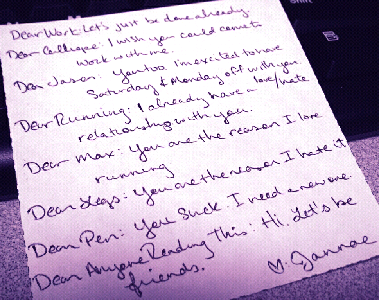 Dear Work: Let's just be done already.
Dear Calliope: I wish you could come to
work with me.
Dear Jason: You too. I'm excited to have
Saturday & Monday off with you.
Dear Running: I already have a love/hate
relationship with you.
Dear Max: You are the reason I love
running
Dear Legs: You are the reason I hate it
Dear Pen: You suck. I need a new one.
Dear Anyone Reading This: Hi. Let's be
friends.
♡. Jannae